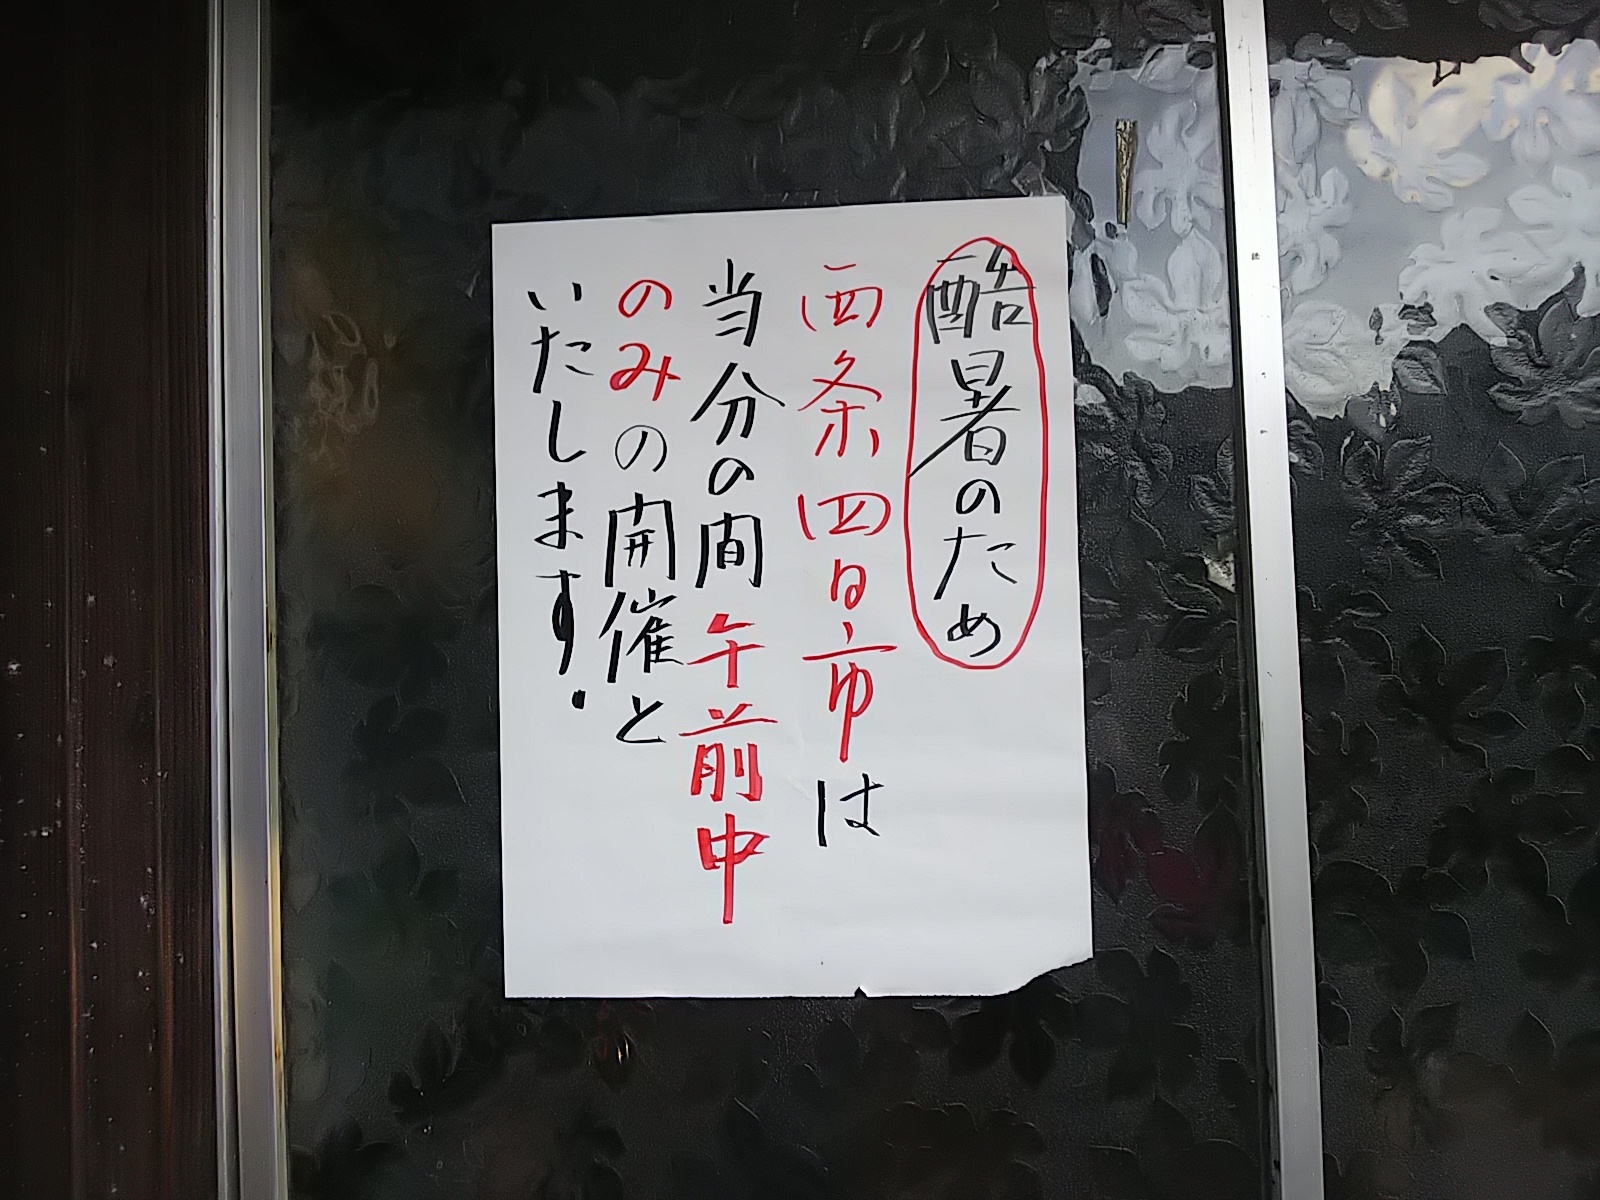 酷暑のため
西条四日市は
当分の間午前中
のみの開催と
いたします.